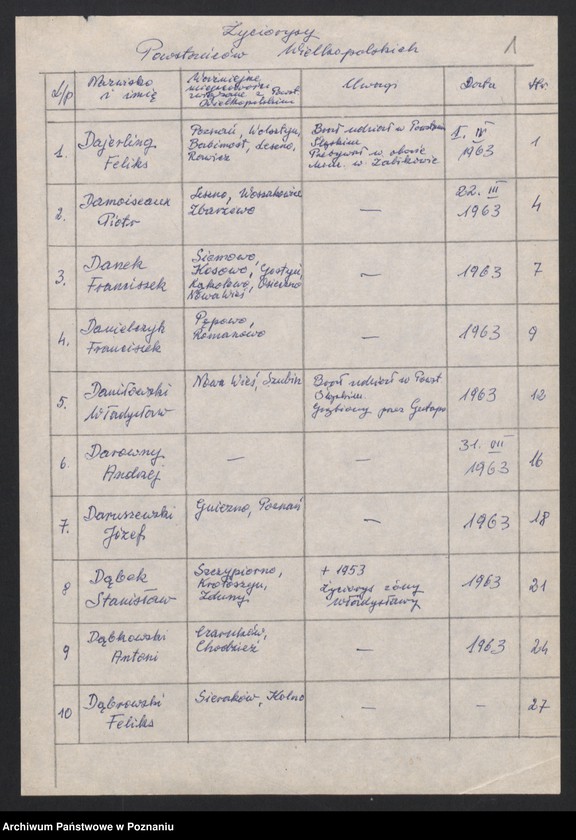 Życiorysy
Powstańców Wielkopolskich
1
L/p
Nazwisko
i imię
Ważniejsze
miejscowości
związane z Powst.
Wielkopolskim
Uwagi
Data
Str
1.
Dajerling
Feliks
Poznań, Wolsztyn,
Babimost, Leszno,
Rawicz
Brał udział w Powstaniu
Śląskim.
Przebywał w obozie
w Żabikowie
1. IV
1963
1
2.
Damoiseaux
Piotr
Leszno, Woszakowice
Zbarzewo
—
22. III
1963
4
3.
Danek
Franciszek
Siemowo,
Kosowo, Gostyń,
Kąkolewo, Osieczno
Nowa Wieś
—
1963
7
4.
Danielczyk
Franciszek
Popowo,
Romanowo
—
1963
9
5.
Daniłowski
Władysław
Nowa Wieś, Szubin
Brał udział w Powst.
Śląskim.
przez Gestapo
1963
12
6.
Darowny
Andrzej
—
—
31. VII
1963
16
7.
Daruszewski
Józef
Gniezno, Poznań
—
1963
18
8
Dąbek
Stanisław
Szczypiorno,
Krotoszyn,
Zduny
+ 1953
Życiorys żony
Władysławy
1963
21
9
Dąbkowski
Antoni
Czarnków,
Chodzież
—
1963
24
10
Dąbrowski
Feliks
Sieraków, Kolno
—
—
27
Archiwum Państwowe w Poznaniu